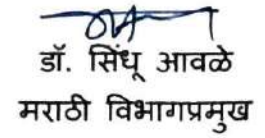 डॉ. सिंधू आवळे
मराठी विभागप्रमुख